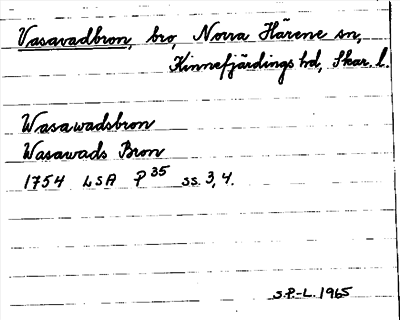 Vasavadbron, bro, Norra Härene sn,
Kinnefjärdings hd, Skar. l.
Wasawadsbron
Wasawads Bron
1754 LSA P 35 ss. 3, 4.
S.P-L. 1965